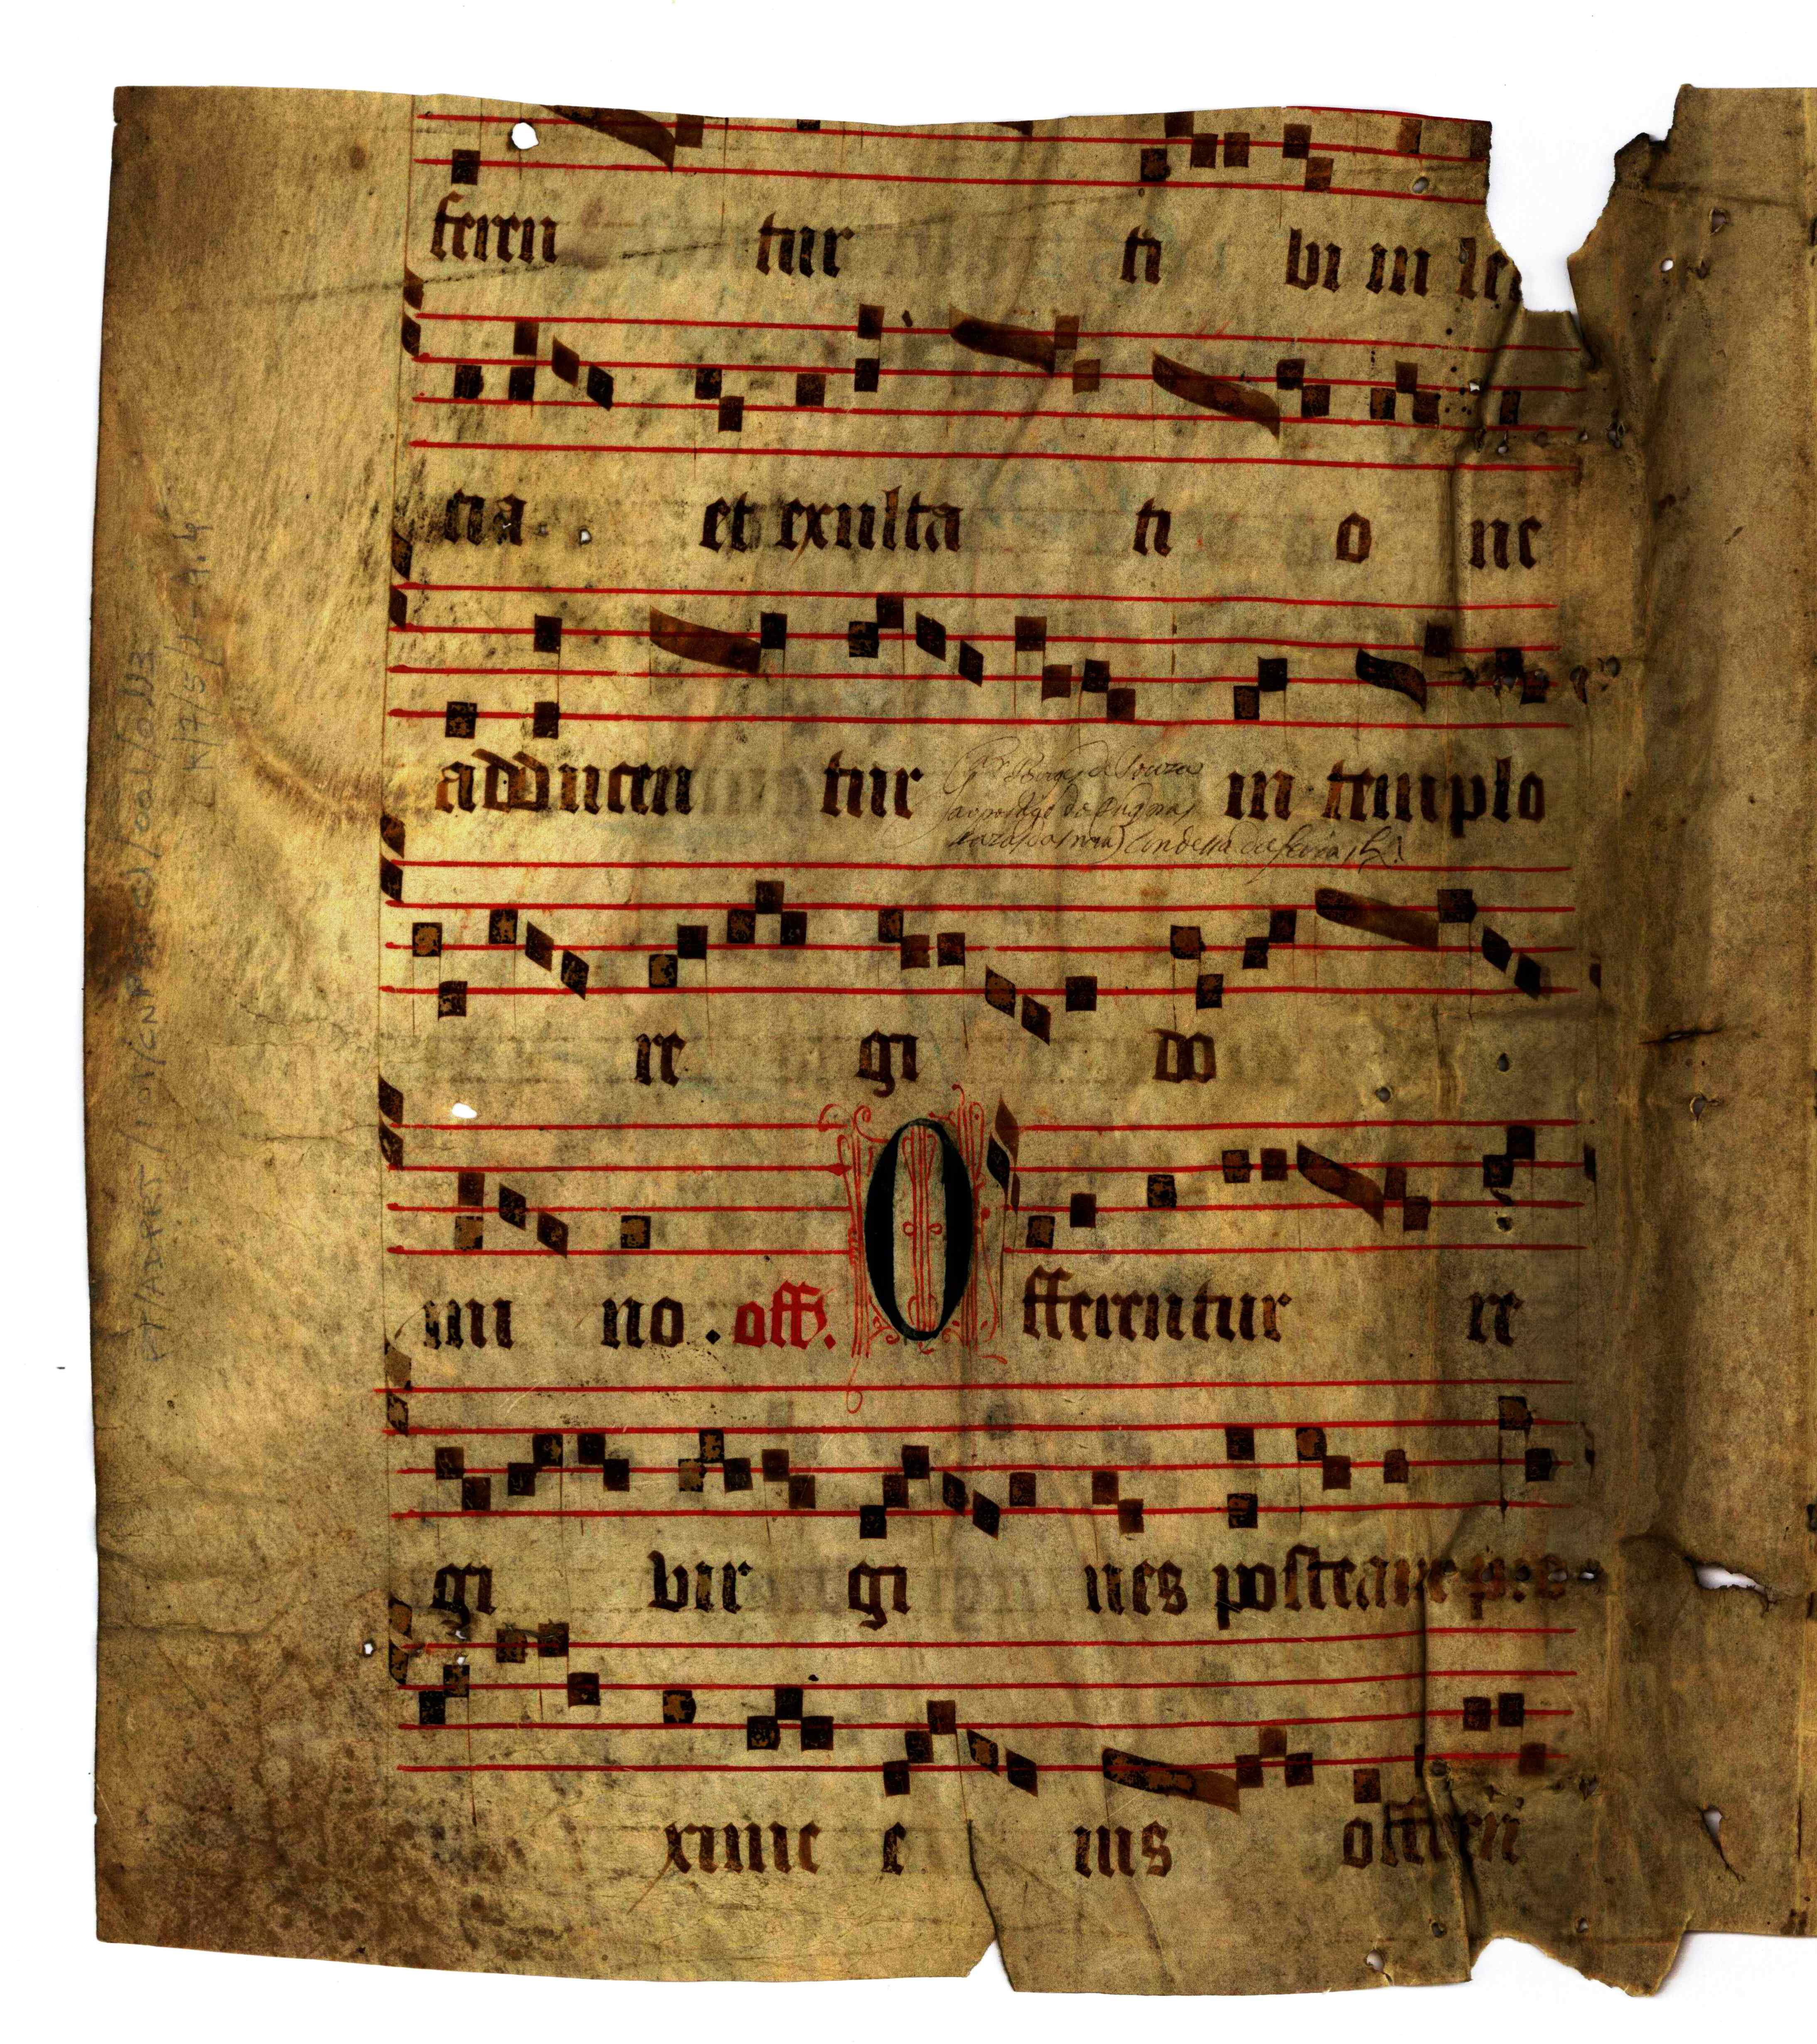 feren tur ti bi in le
cia et exulta ti o ne
adducen tur in templo
re gi do
mi no . off. O fferentur re
gi vir gi nes posteam pro
xime e ius offen